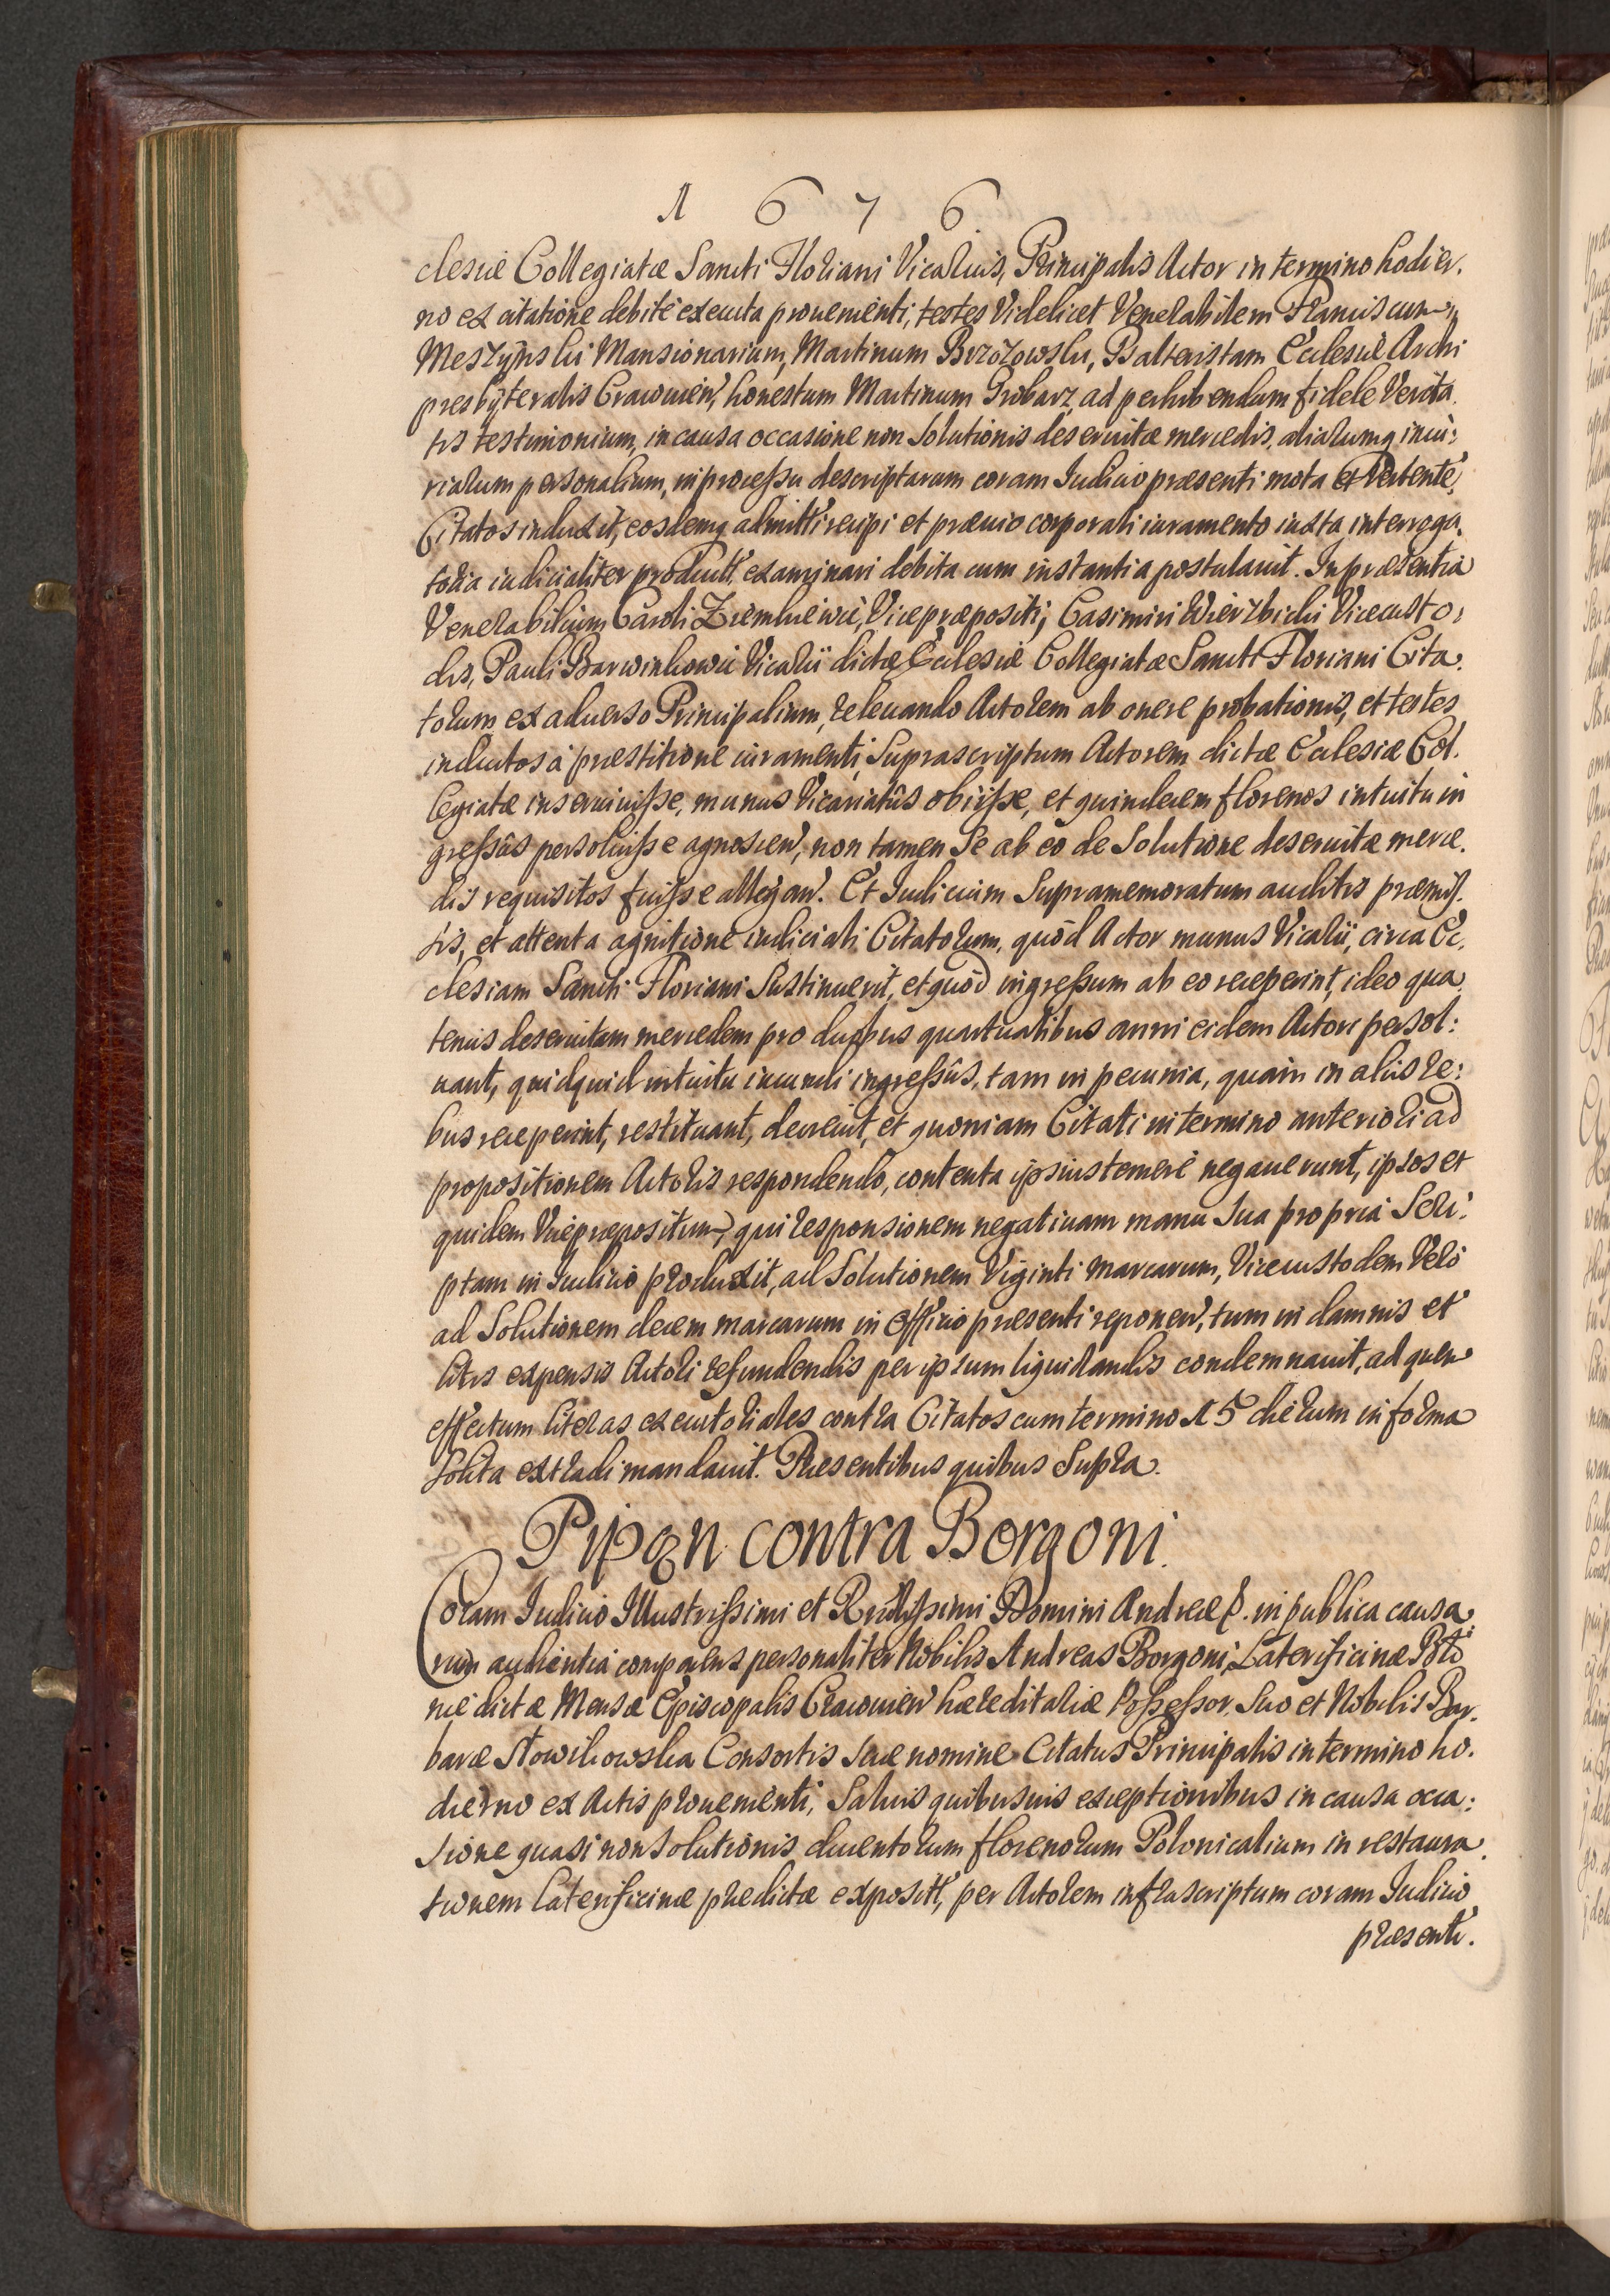 1676
clesiæ Collegiatæ Sancti Floriani Vicarius, Principalis Actor in termino hodier.
no ex citatione debitè executa proveniente, testes videlicet Venerabilem Franciscum
Meszyński Mansionarium, Martinum Brzozowski, Psalteristam Ecclesiæ Archi
presbyteralis Cracovien, honestum Martinum Grobarz, ad perhibendum fidele verita
tis testimonium, in causa occasione non solutionis deservitæ mercedis, aliarumq iniu:
riarum personalium, in processu descriptarum coram Iudicio præsenti mota et vertente,
Citatos induxit, eosdemq admitti recipi et prævio corporali iuramento iuxta interroga.
toria iudicialiter product. examinari debita cum instantia postulavit. In præsentia
Venerabilium Caroli Ziemkiewic, Vicepræpositi, Casimiri Wierzbicki Vicecusto:
dis, Pauli Barwinkowic Vicarii dictæ Ecclesiæ Collegiatæ Sancti Floriani Cita.
torum ex adverso Principalium, relevando Actorem ab onere probationis, et testes
inductos à præstitione iuramenti, Suprascriptum Actorem dictæ Ecclesiæ Col.
legiatæ inserviviße, munus Vicariatûs obiiße, et quindecim florenos intuitu in
greßûs persoluiße agnoscen, non tamen Se ab eo de Solutione deservitæ merce.
dis requisitos fuiße allegan. Et Iudicium Supramemoratum auditis præmiß.
sis, et attenta agnitione iudiciali Citatorum, quòd Actor munus Vicarii, circa Ec.
clesiam Sancti Floriani Sustinuerit, et quòd ingreßum ab eo receperint, ideo qua
tenus deservitam mercedem pro duobus quartualibus anni eidem Actori persol:
vant, quidquid intuitu iucundi ingreßûs, tam in pecunia, quàm in aliis re:
bus receperint, restituant, decrevit, et quoniam Citati in termino anteriori ad
propositionem Actoris respondendo, contenta ipsius temerè negaverunt, ipsos et
quidem Vicepræpositum, qui responsionem negativam manu Sua propria Scri:
ptam in Iudicio produxit, ad Solutionem Viginti marcarum, Vicecustodem Verò
ad Solutionem decem marcarum in Officio præsenti reponen, tum in damnis et
litis expensis Actori refundendis per ipsum liquidandis condemnavit, ad quem
effectum literas executoriales contra Citatos cum termino 15 dierum in forma
solita extradi mandavit. Præsentibus quibus Supra.
Pipan contra Borgoni.
Coram Iudicio Illustrißimi et Rndißimi Domini Andreæ &. in publica causa
rum audientia comparens personaliter Nobilis Andreas Borgoni, Laterificinæ
nie dictæ Mensæ Episcopalis Cracovien hæreditariæ Poßeßor, Suo et Nobilis Bar.
baræ Consortis suæ nomine Citatus Principalis in termino ho.
dierno ex Actis provenienti, Salvis quibusvis exceptionibus in causa occa:
sione quasi non solutionis ducentorum florenorum Polonicalium in restaura.
tionem laterificinæ prædictæ exposit, per Actorem infrascriptum coram Iudicio
præsenti.